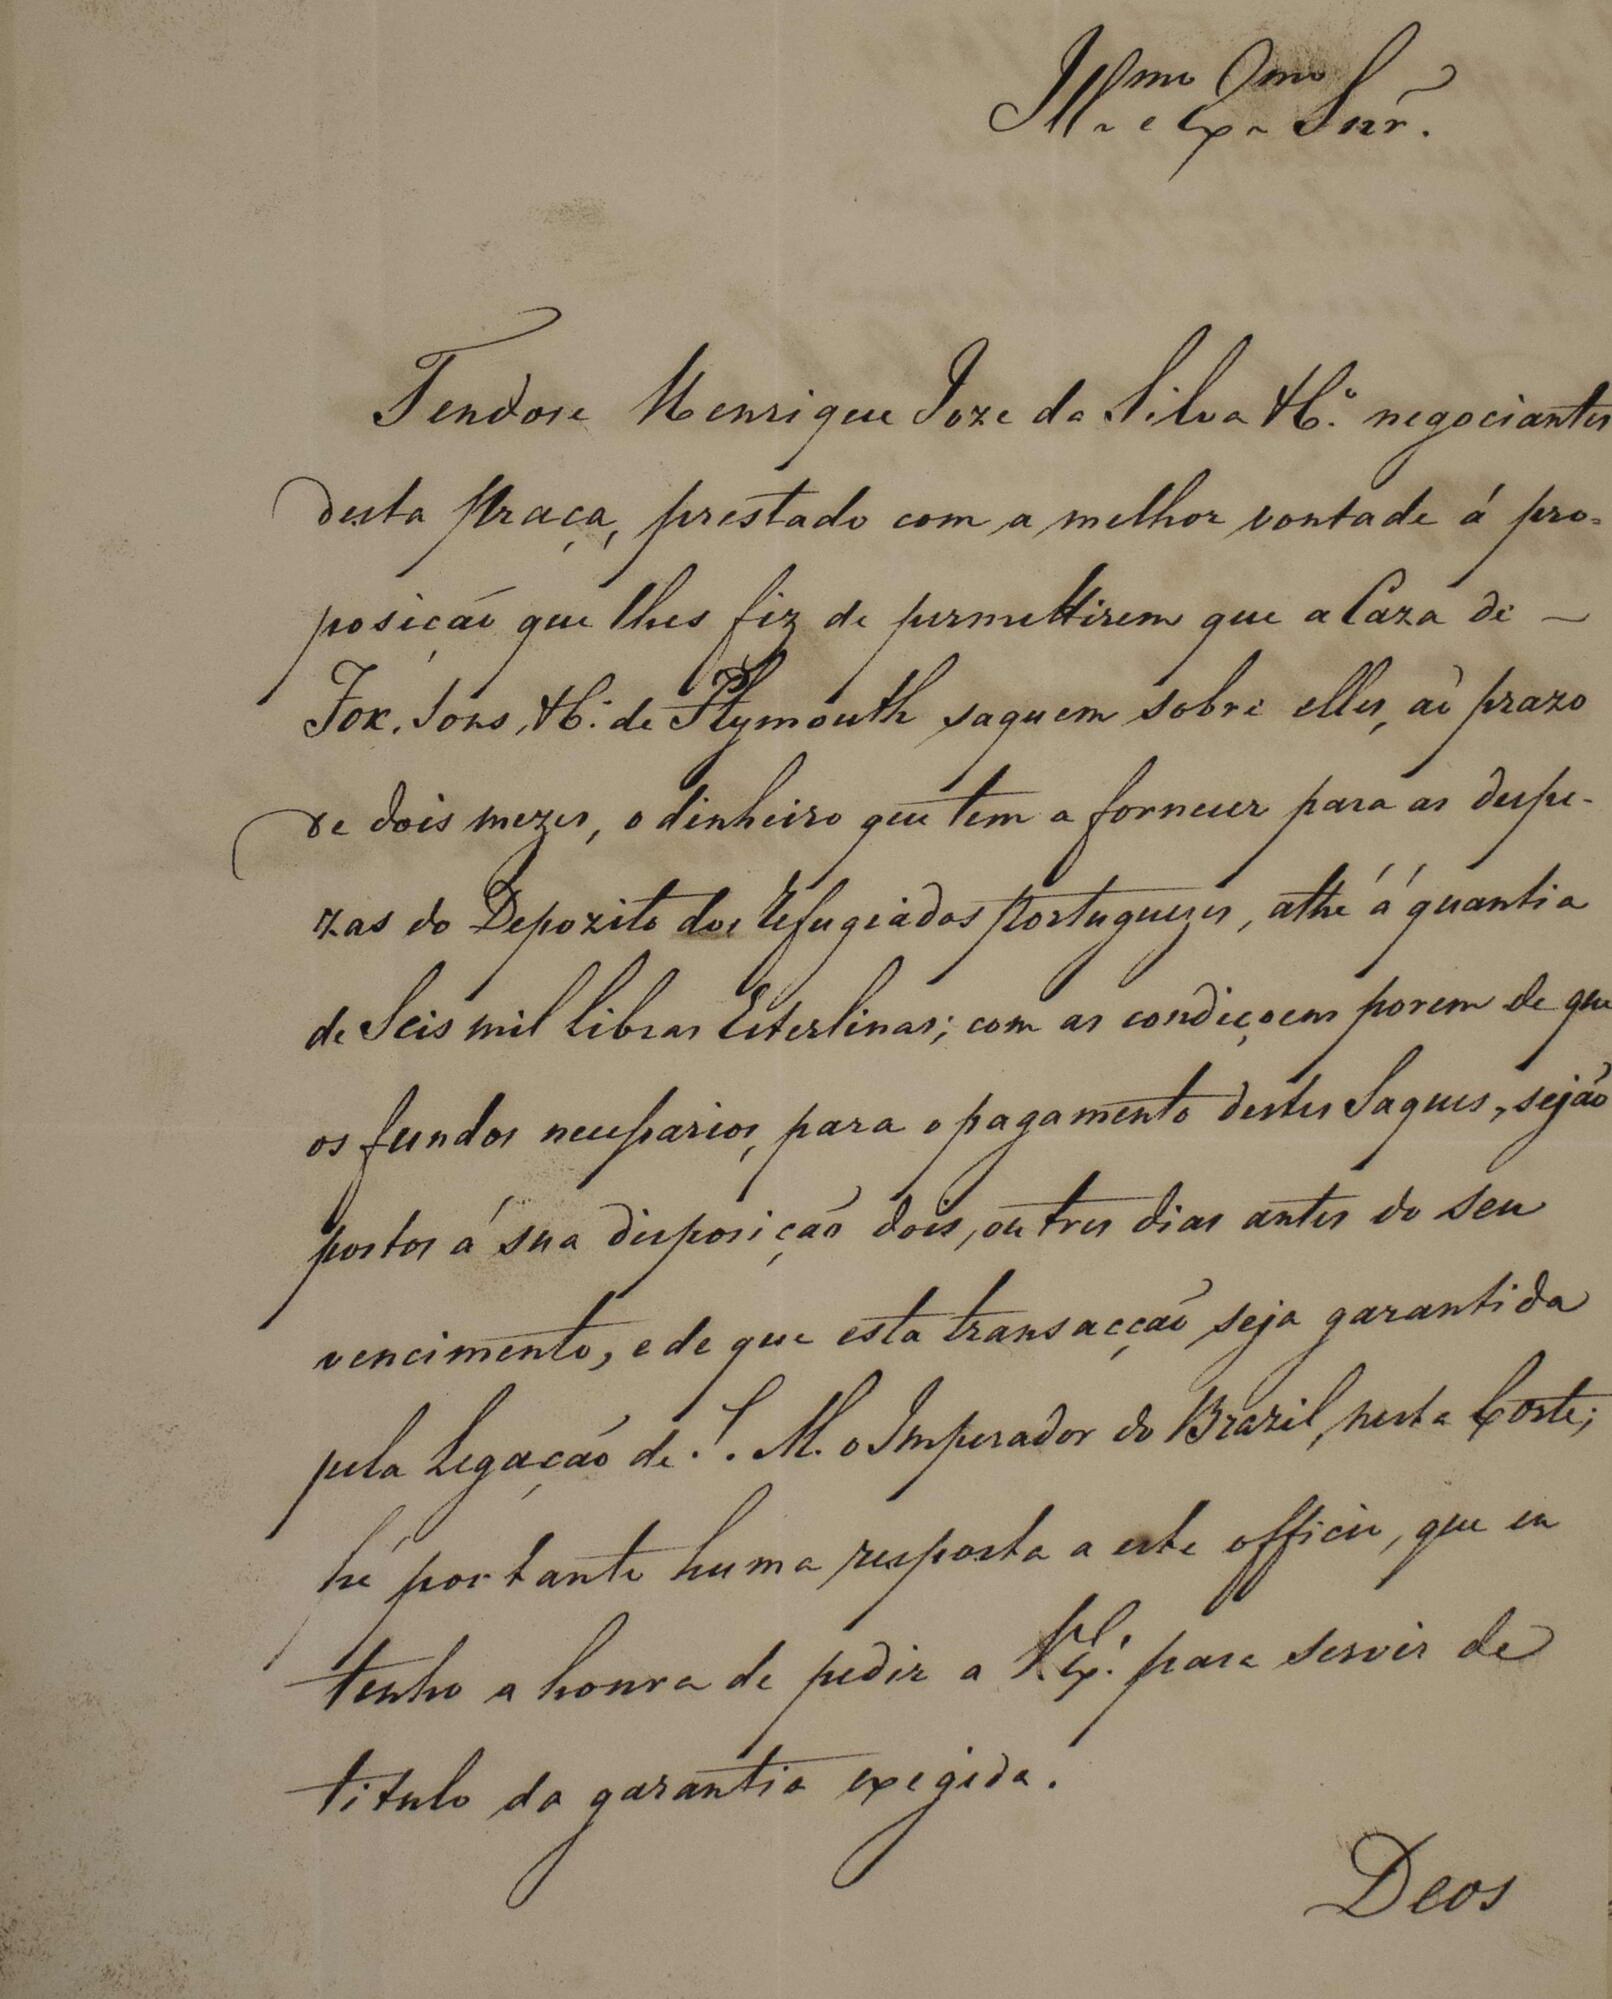 Illmo e Exmo Snr.
Tendose Henrique Joze da Silva & C.o negociantes
desta Praça, prestado com a melhor vontade á pro=
posição que lhes fiz de permettirem que a Caza de —
Fox, Sons, & C.o de Plymouth saquem sobre elles, aò prazo
de dois mezes, o dinheiro que tem a fornecer para as despe-
zas do Depozito dos Refugiados Portuguezes, athé á quantia
de Seis mil Libras Esterlinas; com as condiçoens porem de que
os fundos necessarios, para o pagamento destes Saques, sejão
postos á sua disposição dois, ou tres dias antes do seu
vencimento, e de que esta transacção seja garantida
pela Legação de S. M. o Imperador do Brazil, nesta Corte;
hé portanto huma resposta a este officio, que eu
tenho a honra de pedir a V. Ex.a para servir de
titulo da garantia exigida.
Deos